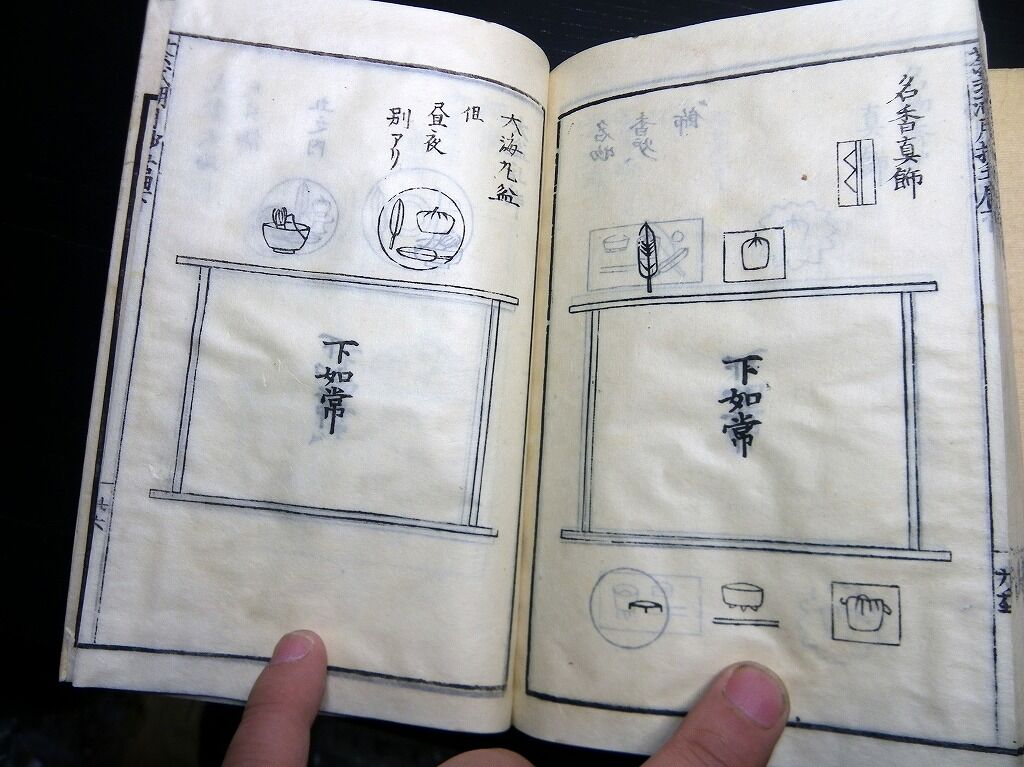 名香真飾
下如常
大海丸盆
但
昼夜
別アリ
下如常